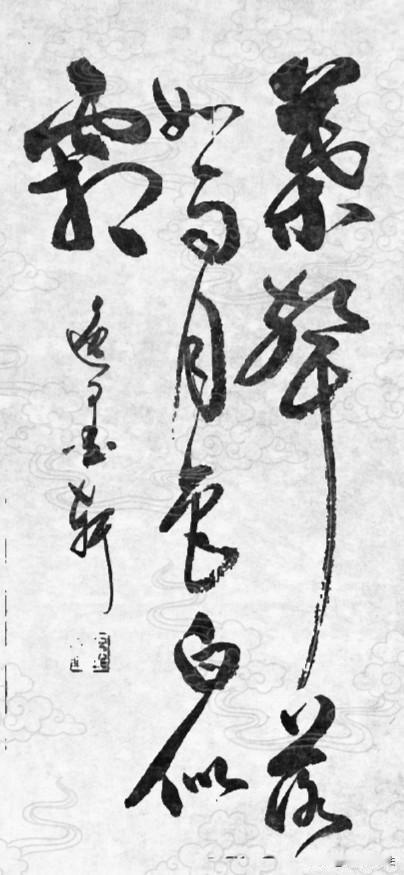 葉聲落
如雨月色白似
霜